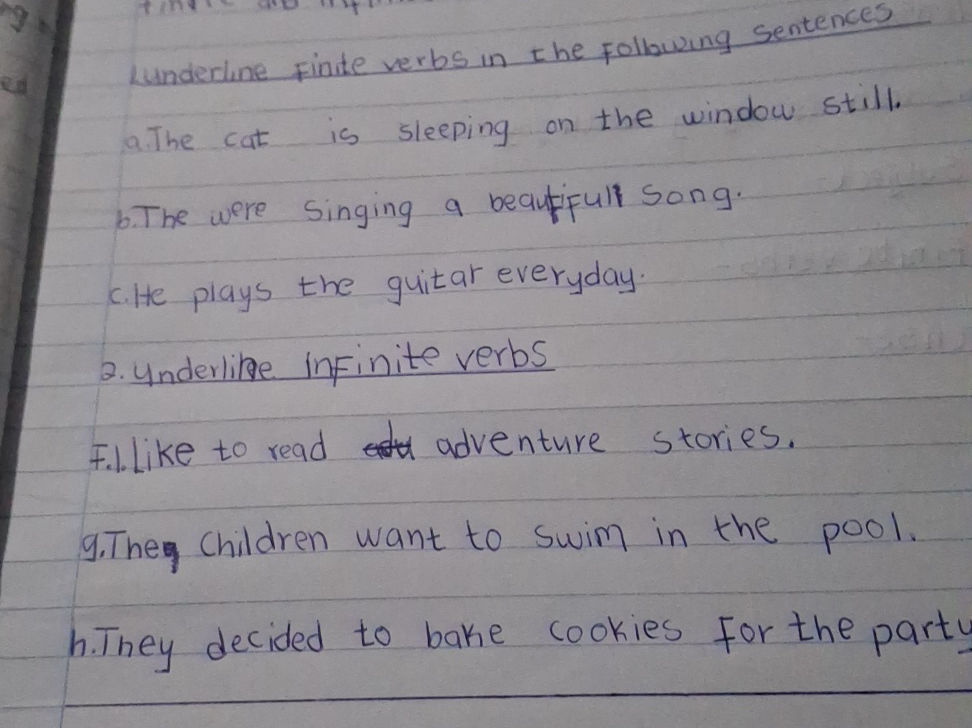 1.underline Finite verbs in the Following Sentences
a.The cat is sleeping on the window still.
b.The were singing a beautifull Song.
c.He plays the guitar everyday.
2. Underline InFinite verbs
F.I.Like to read adventure stories.
g.They Children want to swim in the pool.
h.They decided to bake cookies For the party